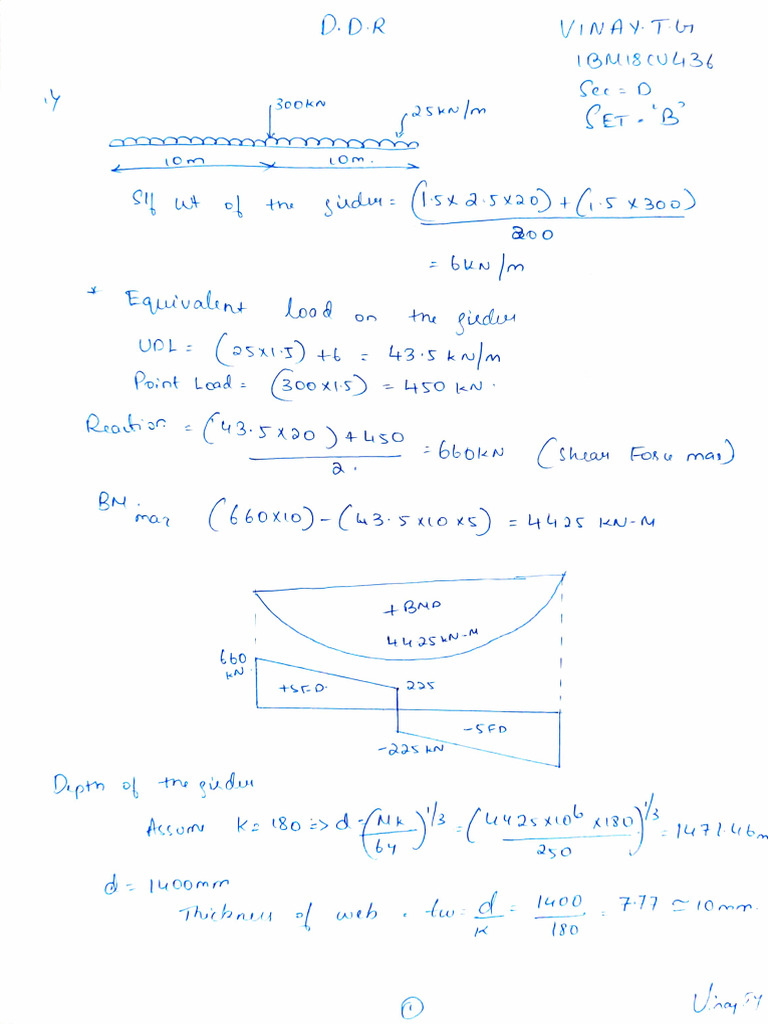 D.D.R
VINAY.T.G
1BM18CV436
Sec = D
SET - "B"
1)
300KN
25KN/m
10m
10m.
Slf wt of the girder = (1.5 x 2.5 x 20) + (1.5 x 300) / 200
= 6KN/m
* Equivalent load on the girder
UDL = (25x1.5) + 6 = 43.5 KN/m
Point Load = (300x1.5) = 450 KN.
Reaction = (43.5 x 20) + 450 / 2. = 660KN (Shear Force max)
BM max (660x10) - (43.5 x10 x5) = 4425 KN-M
+ BMD
4425KN-M
660 KN
+SFD.
225
-SFD
-225KN
Depth of the girder
Assume K = 180 => d = (Mk / by)^1/3 = (4425 x10^6 x180 / 250)^1/3 = 1471.46m
d = 1400mm
Thickness of web . tw = d / K = 1400 / 180 = 7.77 ≃ 10mm.
1
Vinay TG